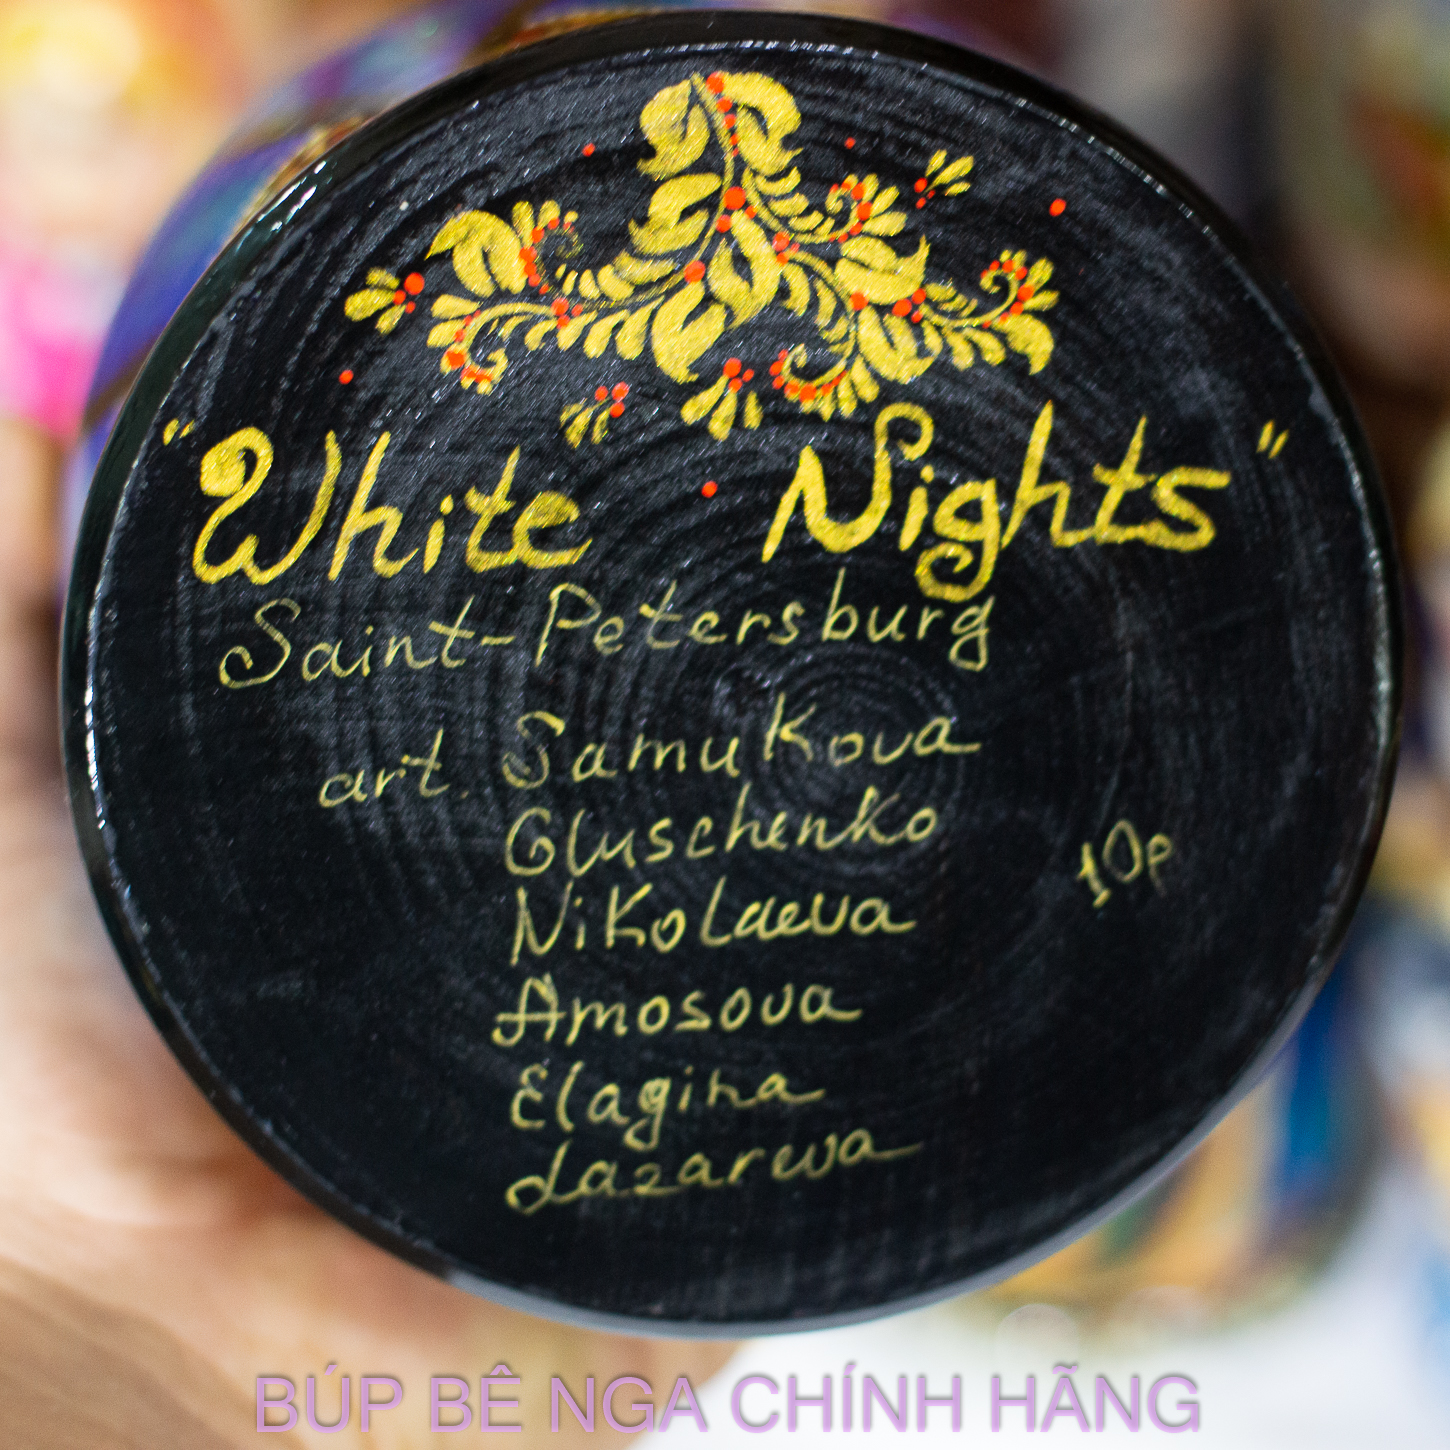 "White Nights"
Saint-Petersburg
art. Samukova
Gluschenko
Nikolaeva
Amosova
Elagina
Lazarewa
10p
BÚP BÊ NGA CHÍNH HÃNG